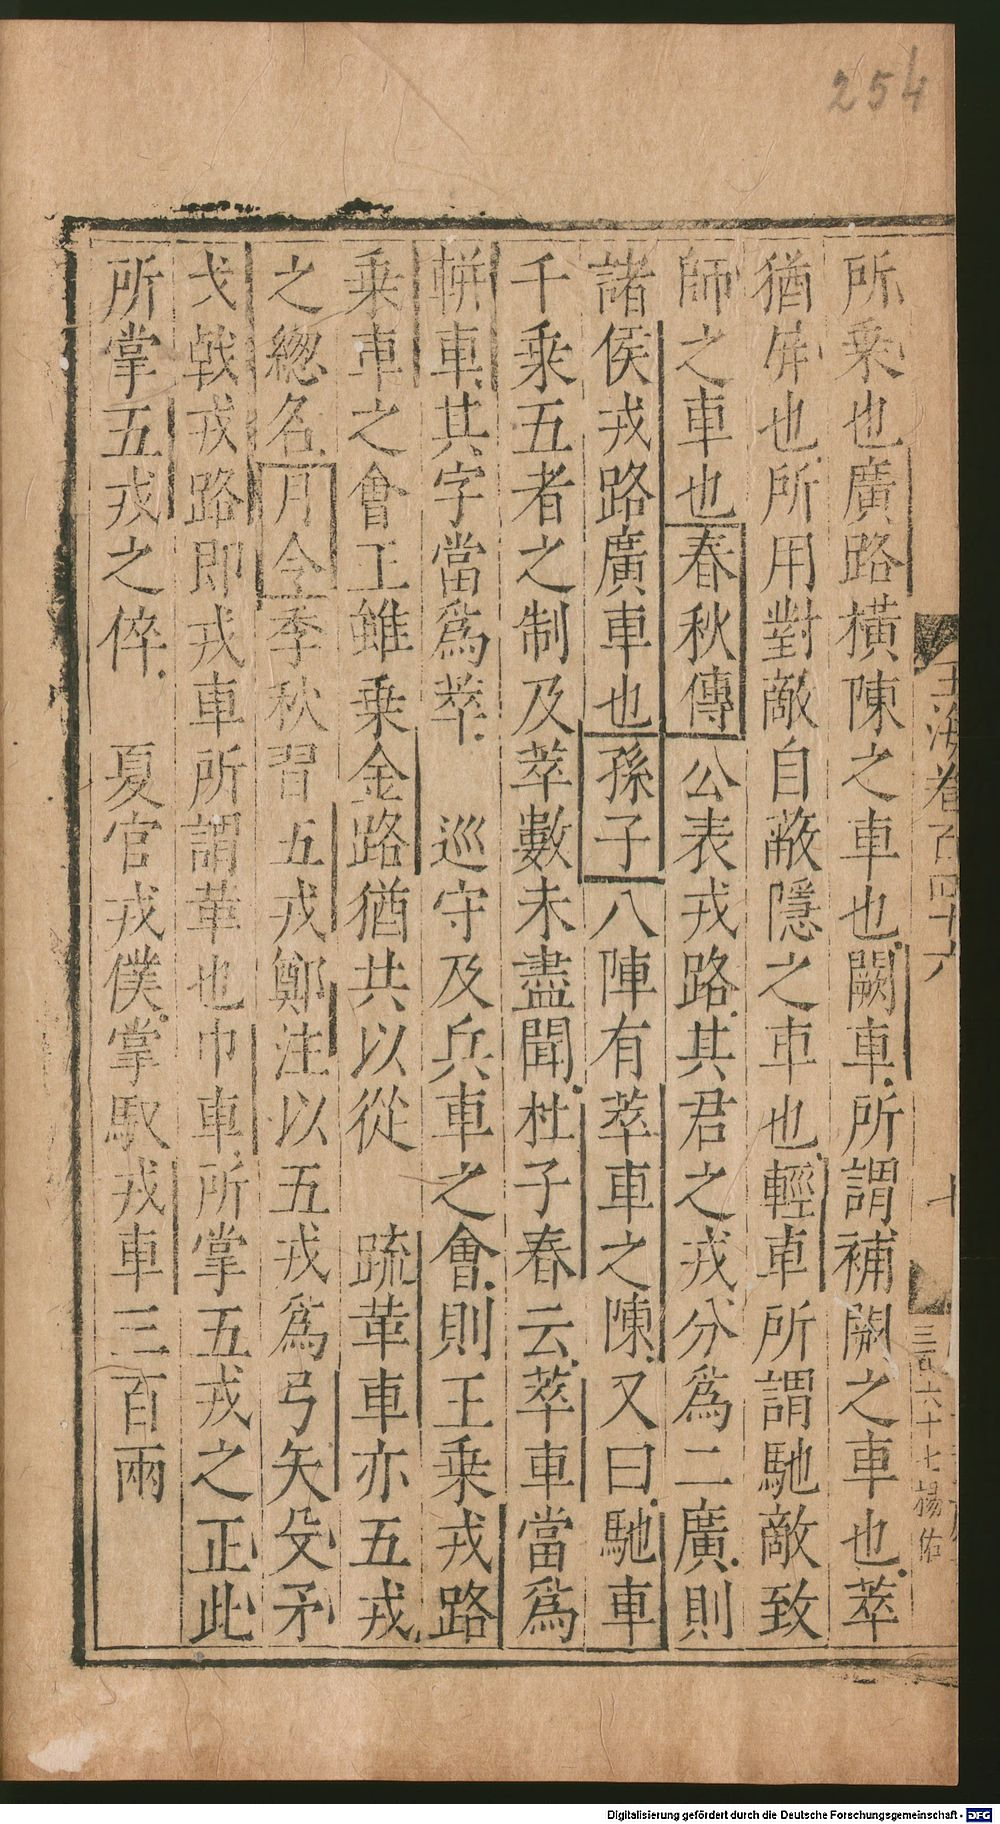 254
所乘也廣路橫陳之車也闕車所謂補闕之車也萃
猶屏也所用對敵自蔽隱之車也輕車所謂馳敵致
師之車也春秋傳公喪戎路其君之戎分爲二廣則
諸侯戎路廣車也孫子八陣有萃車之陳又曰馳車
千乘五者之制及萃數未盡聞杜子春云萃車當爲
輧車其字當爲萃　巡守及兵車之會則王乘戎路
乘車之會王雖乘金路猶共以從　疏革車亦五戎
之總名月令季秋習五戎鄭注以五戎爲弓矢殳矛
戈戟戎路即戎車所謂革也巾車所掌五戎之正此
所掌五戎之倅　夏官戎僕掌馭戎車三百兩
玉海卷百四十六
三百六十七
楊佑
Digitalisierung gefördert durch die Deutsche Forschungsgemeinschaft - DFG